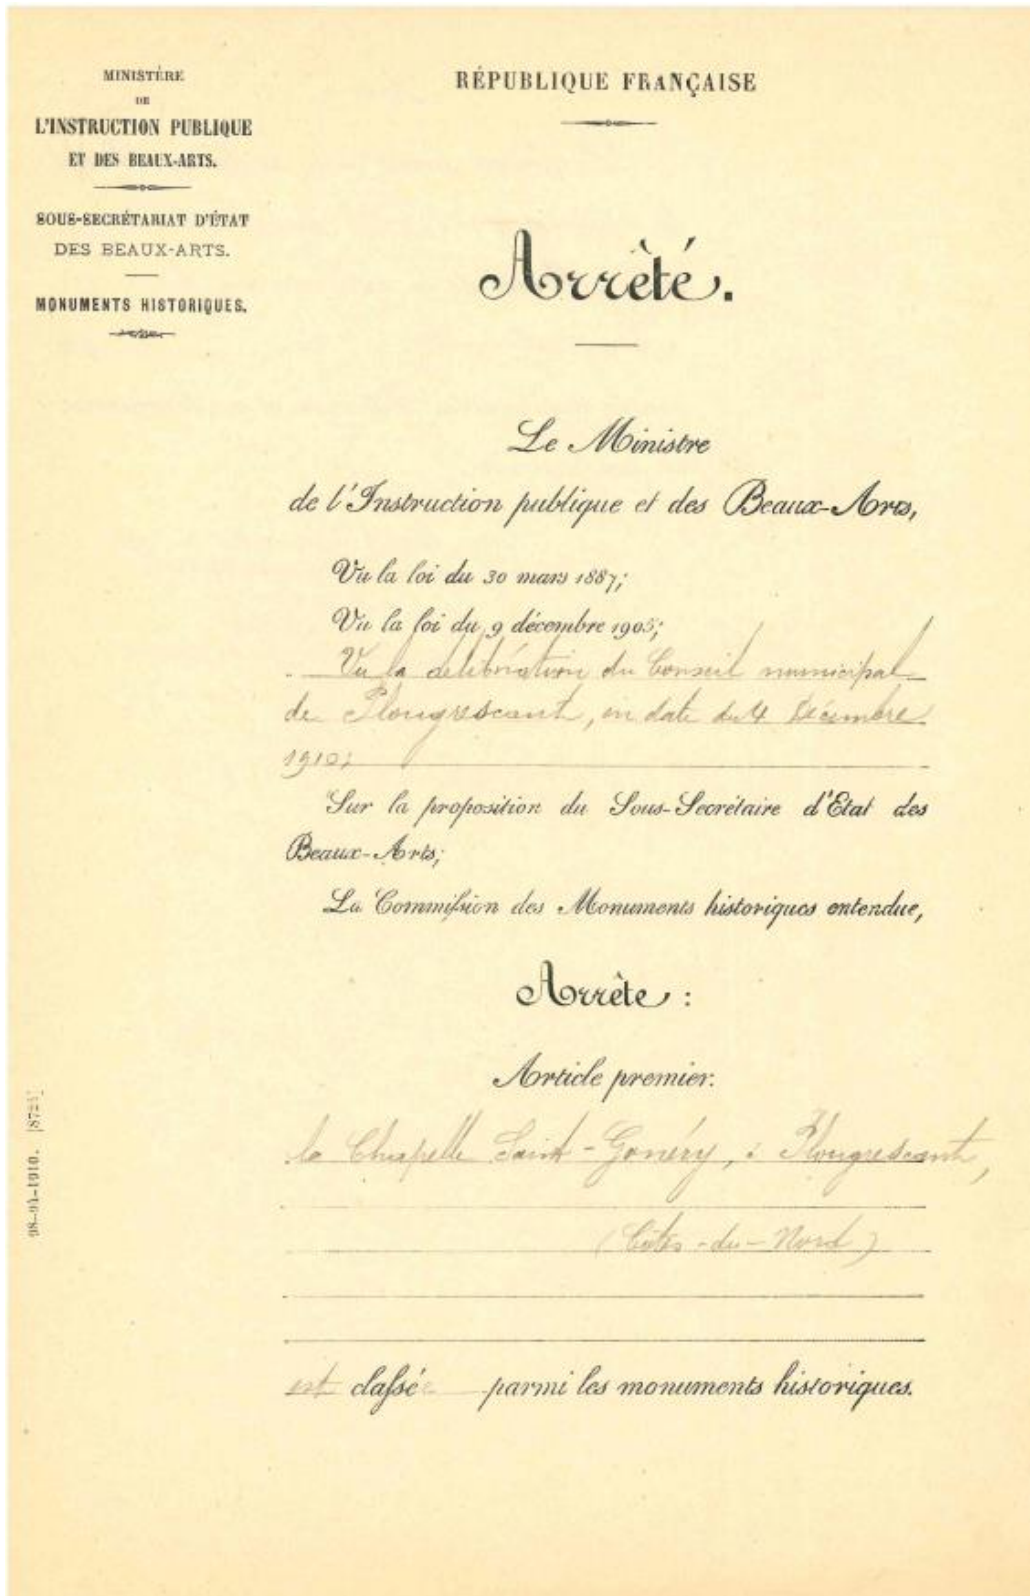 MINISTÈRE
DE
L'INSTRUCTION PUBLIQUE
ET DES BEAUX-ARTS.
SOUS-SECRÉTARIAT D'ÉTAT
DES BEAUX-ARTS.
MONUMENTS HISTORIQUES.
RÉPUBLIQUE FRANÇAISE
Arrêté.
Le Ministre
de l'Instruction publique et des Beaux-Arts,
Vu la loi du 30 mars 1887;
Vu la loi du 9 décembre 1905;
Vu la délibération du Conseil municipal
de Plougrescant, en date du 4 Décembre
1910;
Sur la proposition du Sous-Secrétaire d'État des
Beaux-Arts;
La Commission des Monuments historiques entendue,
Arrête :
Article premier.
la Chapelle Saint-Gonéry, à Plougrescant,
(Côtes-du-Nord)
est classée parmi les monuments historiques.